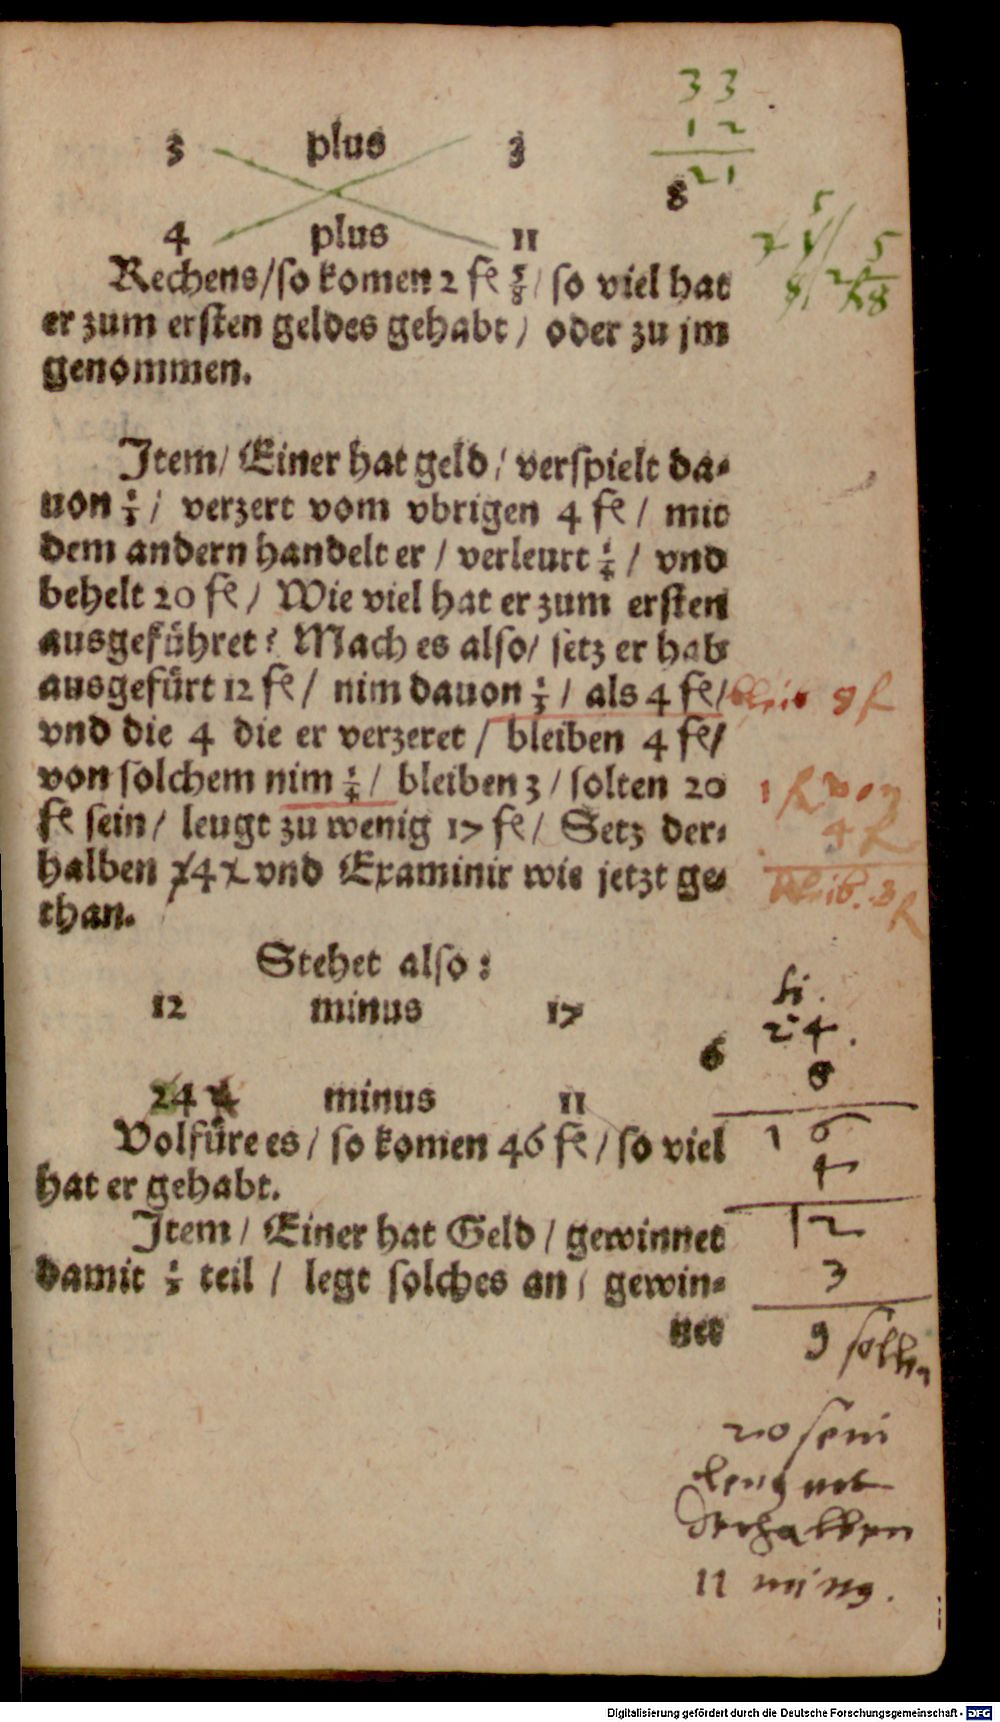 33
12
21
3 plus 3
8
4 plus 11
5
5
8
Rechens/so komen 2 fl 5/8/ so viel hat
er zum ersten geldes gehabt/ oder zu jm
genommen.
Item/ Einer hat geld/ verspielt da-
uon 1/3/ verzert vom vbrigen 4 fl/ mit
dem andern handelt er/ verleurt 1/4/ vnd
behelt 20 fl/ Wie viel hat er zum ersten
ausgeführet? Mach es also/ setz er hab
ausgefürt 12 fl/ nim dauon 1/3/ als 4 fl/
bleib 8 fl
vnd die 4 die er verzeret/ bleiben 4 fl/
von solchem nim 1/4/ bleiben 3/ solten 20
1 fl von
fl sein/ leugt zu wenig 17 fl/ Setz der-
4 fl
halben 24 vnd Examinir wie jetzt ge-
bleib. 3 fl
than.
Stehet also:
12 minus 17
fl.
24.
6
8
24 minus 11
Volfüre es/ so komen 46 fl/ so viel
16
4
hat er gehabt.
Item/ Einer hat Geld/ gewinnet
12
damit 1/3 teil/ legt solches an/ gewin-
3
net
9 solten
20 sein
derhalben
11 ming.
Digitalisierung gefördert durch die Deutsche Forschungsgemeinschaft - DFG